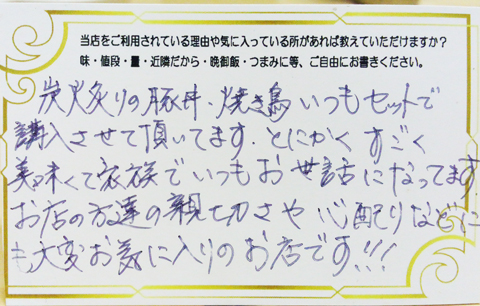 当店をご利用されている理由や気に入っている所があれば教えていただけますか?
味・値段・量・近隣だから・晩御飯・つまみに等、ご自由にお書きください。
炭火炙りの豚丼、焼き鳥いつもセットで
講入させて頂いてます。とにかくすごく
美味くて家族でいつもお世話になってます
お店の方達の親切さや心配りなどに
も大変お気に入りのお店です!!!